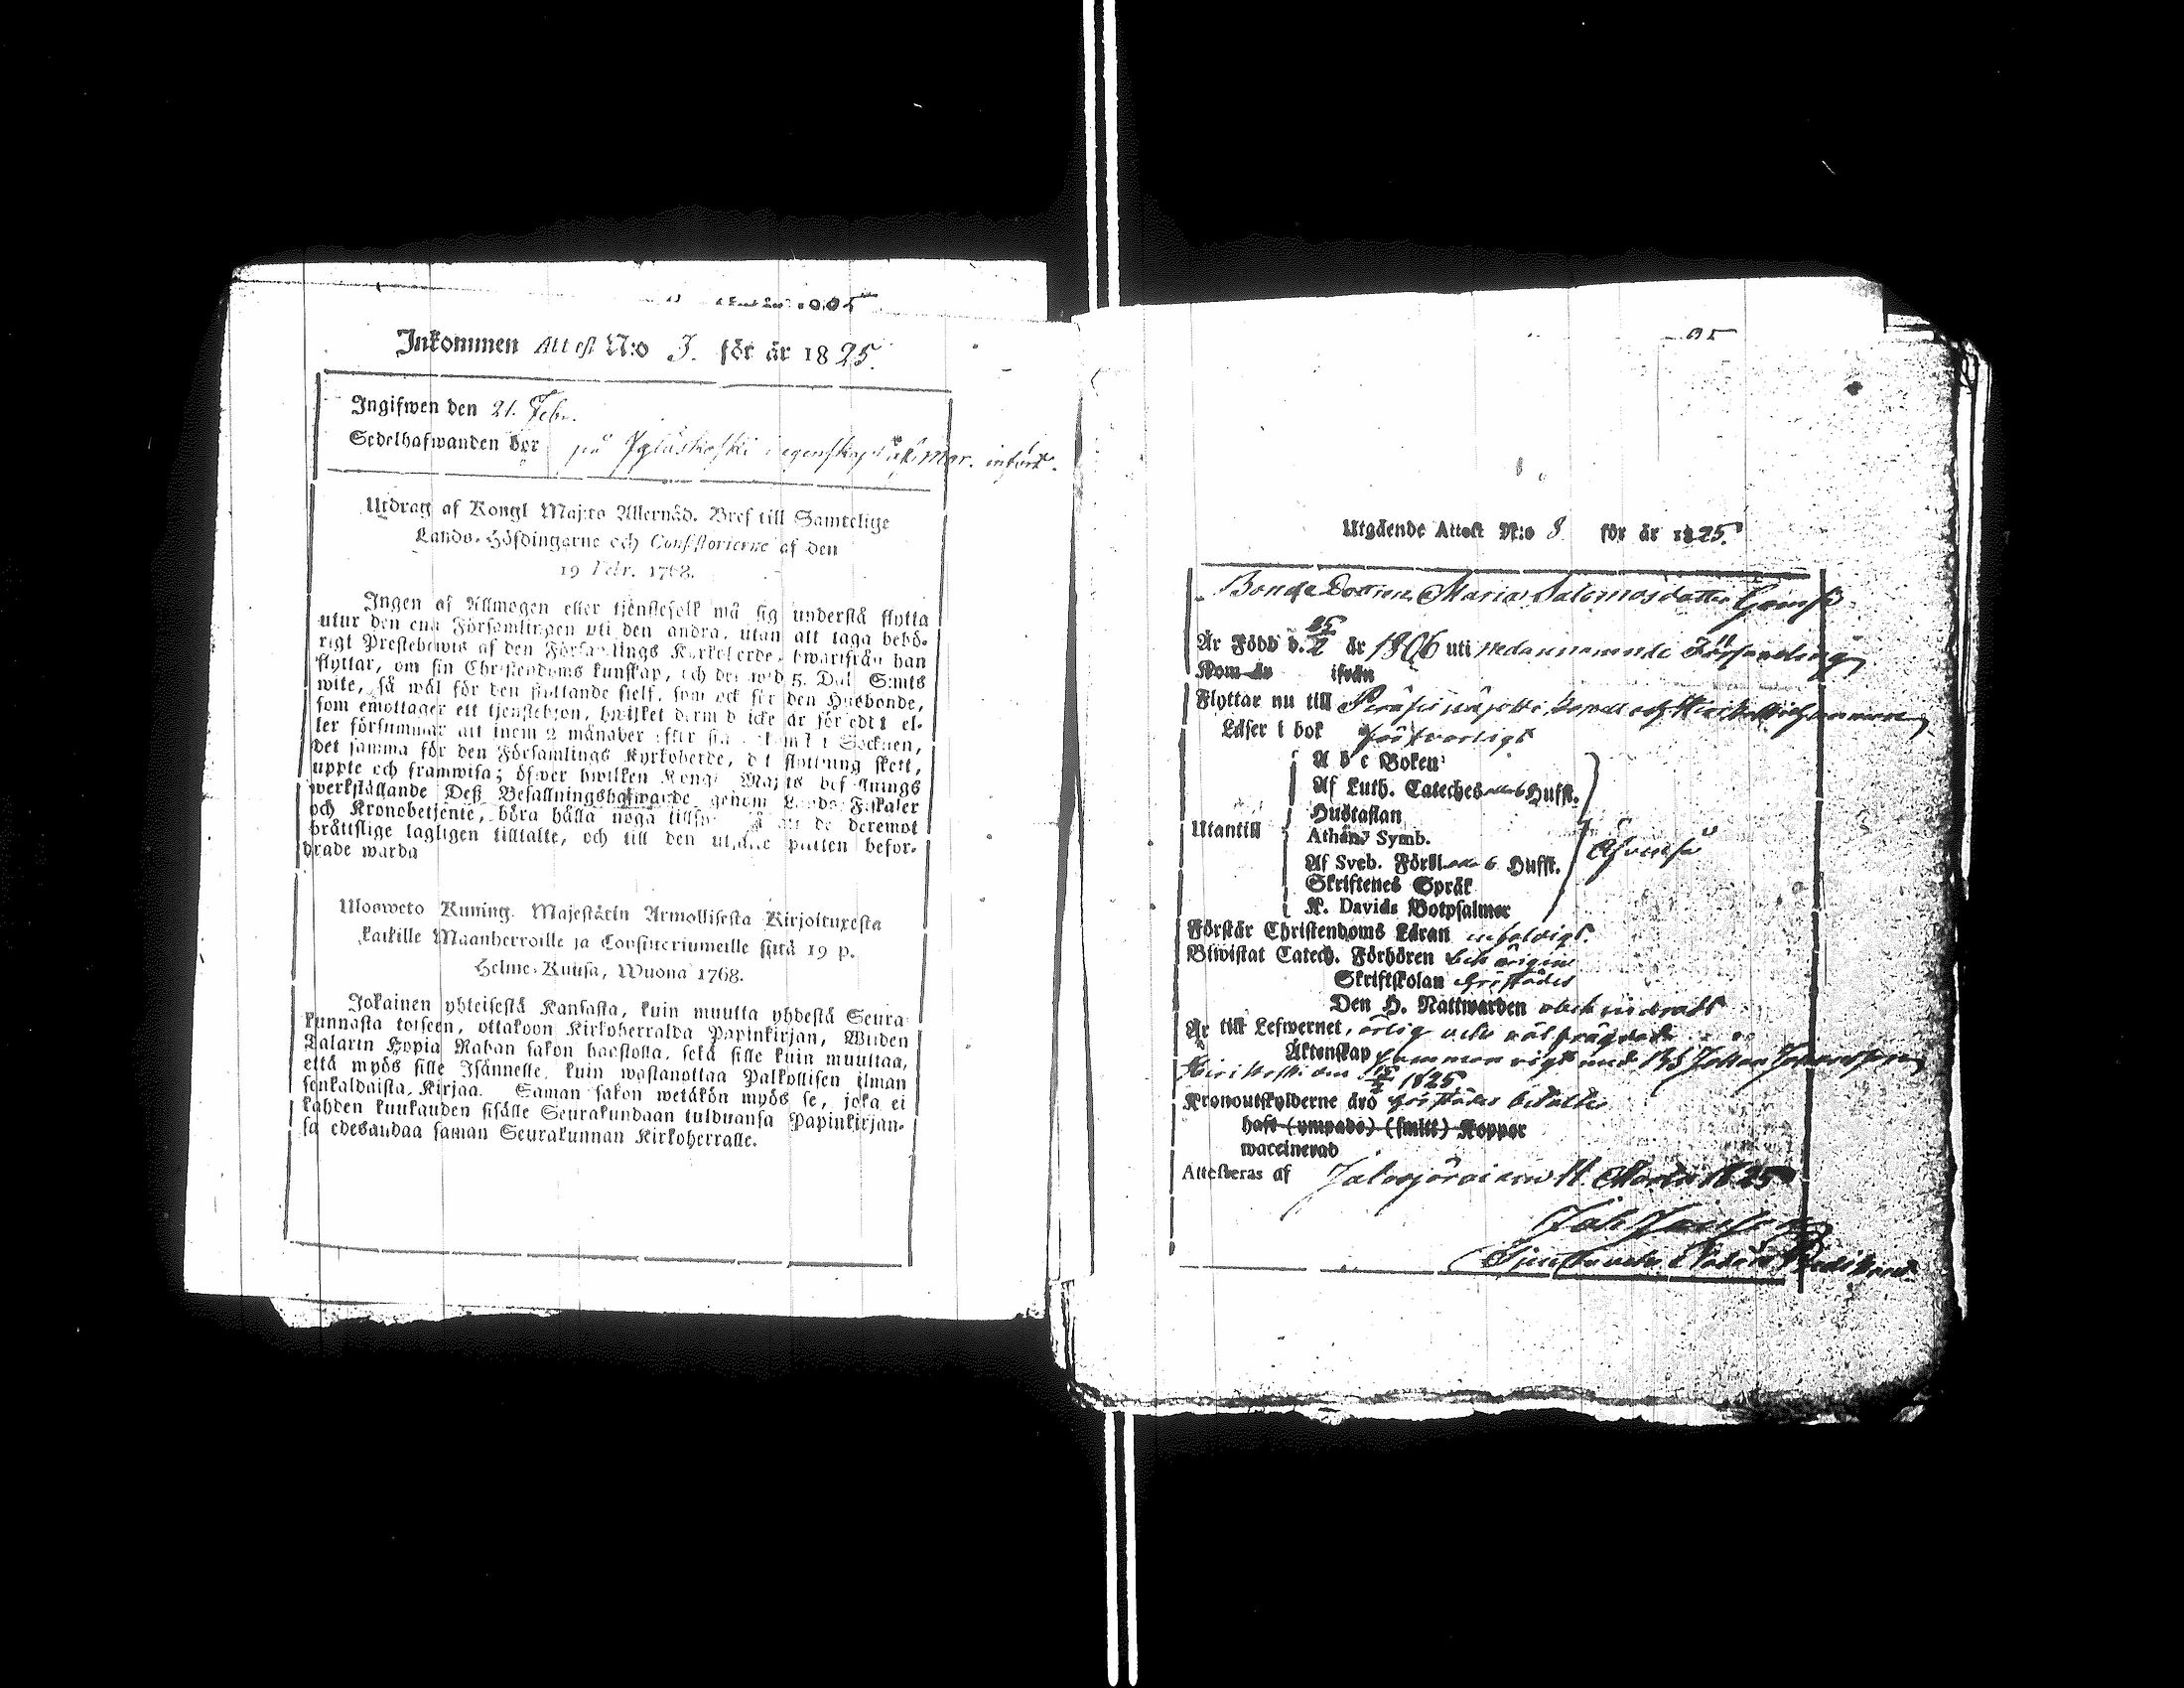 Inkommen Attest N:o 3. för år 1825.
Ingifwen den 21. Febr.
Sedelhafwanden bor på i egenskap af mor. införd.
Utdrag af Kongl Maj:ts Allernåd. Bref till Samtelige
Lands-Höfdingarne och Consistorierne af den
19 Febr. 1768.
Ingen af Allmogen eller tjenstefolk må sig understå flytta
utur den ena Församlingen uti den andra, utan att taga behö-
rigt Prestebewis af den Församlings Kyrkoherde, hwarifrån han
flyttar, om sin Christendoms kunskap, och det wid 5. Dal. S:mts
wite, så wäl för den flyttande sielf, som ock för den Husbonde,
som emottager ett tjenstehjon, hwilket dermed icke är försedt el-
ler försummar att inom 2 månader efter sin ankomst i Socknen,
det samma för den Församlings Kyrkoherde, dit flyttning skett,
uppte och framwisa; öfwer hwilken Kongl Maj:ts befallnings
werkställande Deß Befallningshafwande genom Lands-Fiskaler
och Kronobetjente, böra hålla noga tillsyn så att de deremot
bråttslige lagligen tilltalte, och till den utsatte plikten befor-
drade warda
Ulosweto Kuning. Majestätin Armollisesta Kirjoituxesta
kaikille Maanherroille ja Consistoriumeille siitä 19 p.
Helme-Kuusa, Wuona 1768.
Jokainen yhteisestä Kansasta, kuin muutta yhdestä Seura-
kunnasta toiseen, ottakoon Kirkoherralda Papinkirjan, Wiiden
Talarin Hopia Rahan sakon haastolla, sekä sille kuin muuttaa,
että myös sille Isännelle, kuin wastanottaa Palkollisen ilman
senkaldaista Kirjaa. Saman sakon wetäkön myös se, joka ei
kahden kuukauden sisälle Seurakundaan tulduansa Papinkirjan-
sa edesandaa saman Seurakunnan Kirkoherralle.
Utgående Attest N:o 8 för år 1825.
Bonde Dottren Maria Salomosdotter
Är Född d. 25/2 år 1806 uti nedannämnde Församling
Kom år ifrån
Flyttar nu till Peräseinäjoki Capell och
Läser i bok försvarligt
A b c Boken
Af Luth. Cateches alla 6 Hufst.
Hustaflan
Utantill
Athan. Symb.
Af Sveb. Förkl. alla 6 Hufst.
Skriftenes Språk
K. Davids Botpsalmer
Förstår Christendoms Läran enfaldigt.
Biwistat Catech. Förhören behörigen
Skriftskolan
Den H. Nattwarden obehindradt
Är till Lefwernet, ärlig och
Äktenskap sammanvigt med Johan
den 15/2 1825.
Kronoutskylderne äro betalte
haft (ympade) (smitt) Koppor
waccinerad
Attesteras af Jalasjärvi den 11. Martii 1825